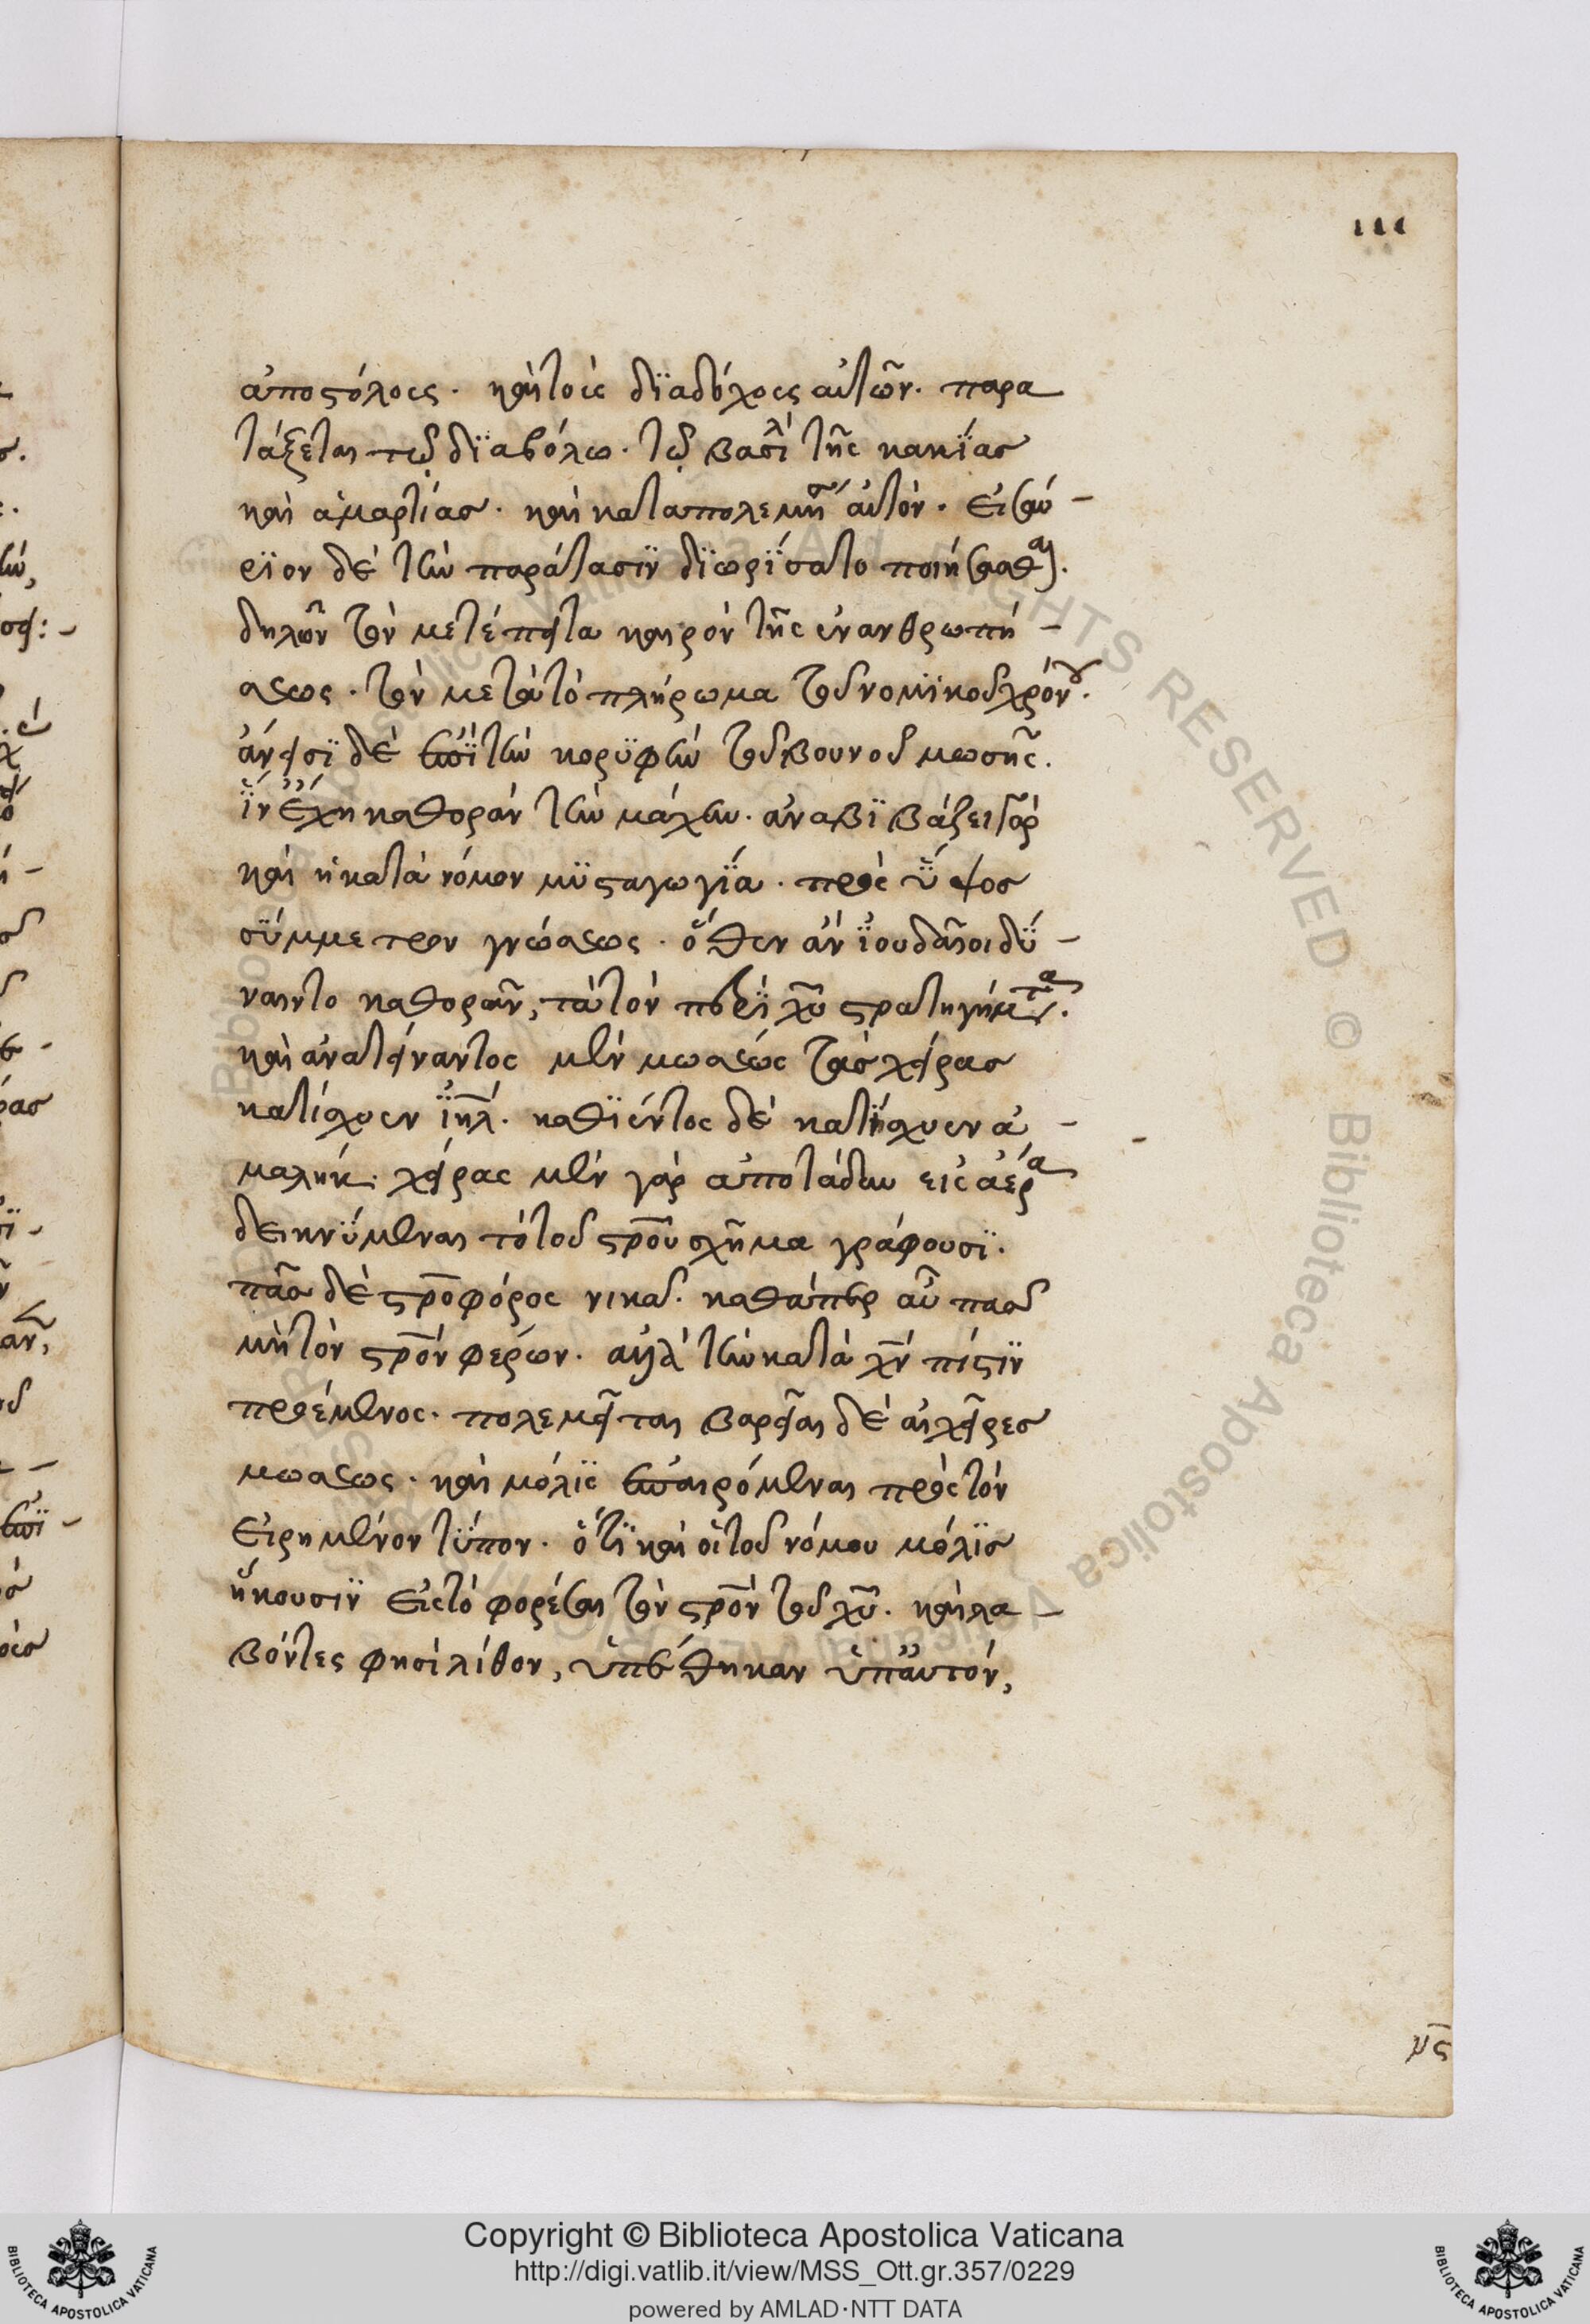 ııı
ἀποστόλοις. καὶ τοῖς διαδόχοις αὐτῶν. παρα
τάξεται τῷ διαβόλω. τῷ βασιλεῖ τῆς κακίας
καὶ ἁμαρτίας. καὶ καταπολεμήσει αὐτόν. εἰς αύ-
ριον δὲ τὴν παράταξιν διωρίσατο ποιήσασθαι.
δηλῶν τὸν μετέπειτα καιρὸν τῆς ἐνανθρωπή-
σεως. τὸν μετὰ τὸ πλήρωμα τοῦ νομικοῦ χρόνου.
ἄνεισι δὲ ἐπὶ τὴν κορυφὴν τοῦ βουνοῦ μωσῆς.
ἵν' ἔχη καθορᾶν τὴν μάχην. ἀναβιβάζει γὰρ
καὶ ἡ κατὰ νόμον μυσταγωγία. πρὸς ὕψος
σύμμετρον γνώσεως. ὅθεν ἂν ἰουδαῖοι δύ-
ναιντο καθορᾶν, τὰ τὸν περὶ χυ στρατηγήματα.
καὶ ἀνατείναντος μὲν μωσέως τὰς χεῖρας
κατίσχυεν ιηλ. καθιέντος δὲ κατίσχυεν ἀ-
μαλήκ. χεῖρας μὲν γὰρ ἀποτάδην εἰς ἀέρα
δεικνύμεναι τὸ τοῦ στρου σχῆμα γράφουσι.
πᾶς δὲ στροφόρος νικᾶ. καθάπερ αὖ πᾶς
μὴ τὸν στρον φέρων. ἀλλὰ τὴν κατὰ χν πίστιν
προέμενος. πολεμεῖται βαρεῖαι δὲ αἱ χεῖρες
μωσέως. καὶ μόλις ἐπαιρόμεναι πρὸς τὸν
εἰρημένον τύπον. ὅτι καὶ οἱ τοῦ νόμου μόλις
ἥκουσιν εἰς τὸ φορέσαι τὸν στρον τοῦ χυ. καὶ λα-
βόντες φησὶ λίθον, ὑπέθηκαν ὑπ' αὐτόν,
μς
Copyright © Biblioteca Apostolica Vaticana
http://digi.vatlib.it/view/MSS_Ott.gr.357/0229
powered by AMLAD·NTT DATA